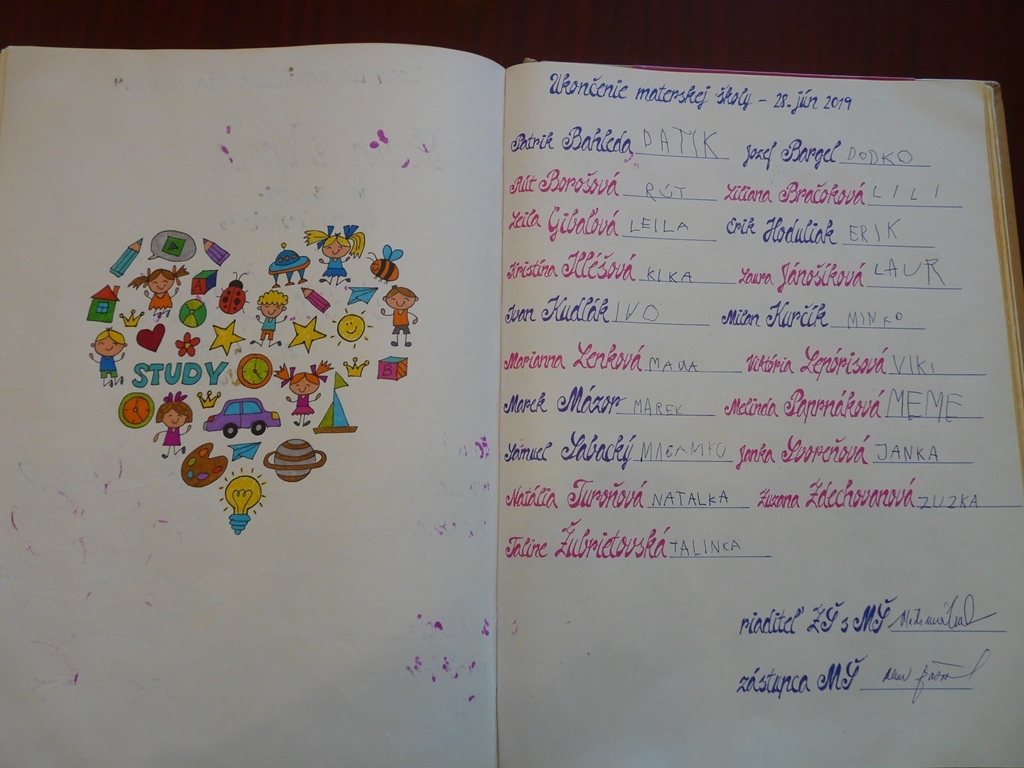 STUDY
A
B
Ukončenie materskej školy - 28. jún 2019
Patrik Bahleda DATIK Jozef Bargel DODKO
Rút Borošová RÚT Liliana Bračoková LILI
Leila Gibaľová LEILA Erik Hoduliak ERIK
Kristína Klešová KIKA Laura Jánošíková LAUR
Ivan Kudlák IVO Milan Kurčík MINKO
Marianna Lenková Viktória Lepórisová VIKI
Marek Mázor MAREK Melinda Paprnáková MEME
Samuel Sabacký Janka Svorčňová JANKA
Natália Turoňová NATALKA Zuzana Záechovanová ZUZKA
Taline Žubrietovská TALINKA
riaditeľ ZŠ s MŠ
zástupca MŠ